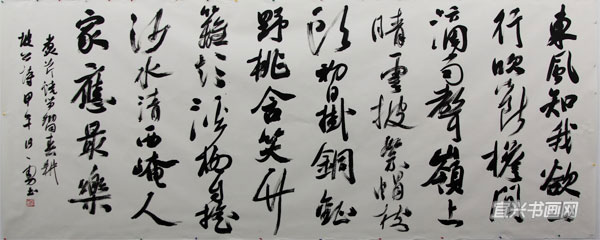 東風知我欲山
行吹斷檐間
積雨聲嶺上
晴雲披絮帽樹
頭初日掛銅鉦
野桃含笑竹
籬短溪柳自搖
沙水清西崦人
家應最樂
煮芹燒筍餉春耕
坡公詩甲午 書
宜兴书画网